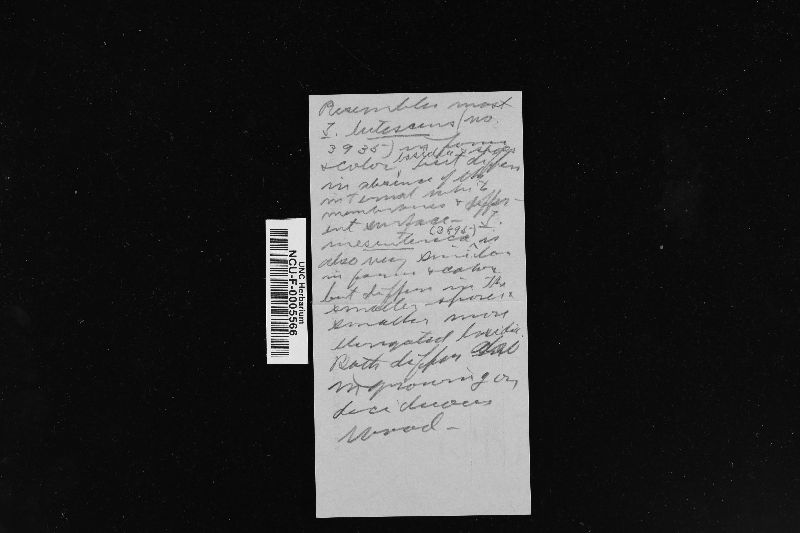 Resembles most
T. lutescens (no.
3935) in form
basidia & spores
& color but differs
in absence of the
internal white
membranes & differ-
ent surface - T.
(3595)
mesenterica is
also very similar
in form & color
but differs in the
smaller spores &
smaller more
elongated basidia.
Both differ also
in growing on
deciduous
wood -
UNC Herbarium
NCU-F-0005566